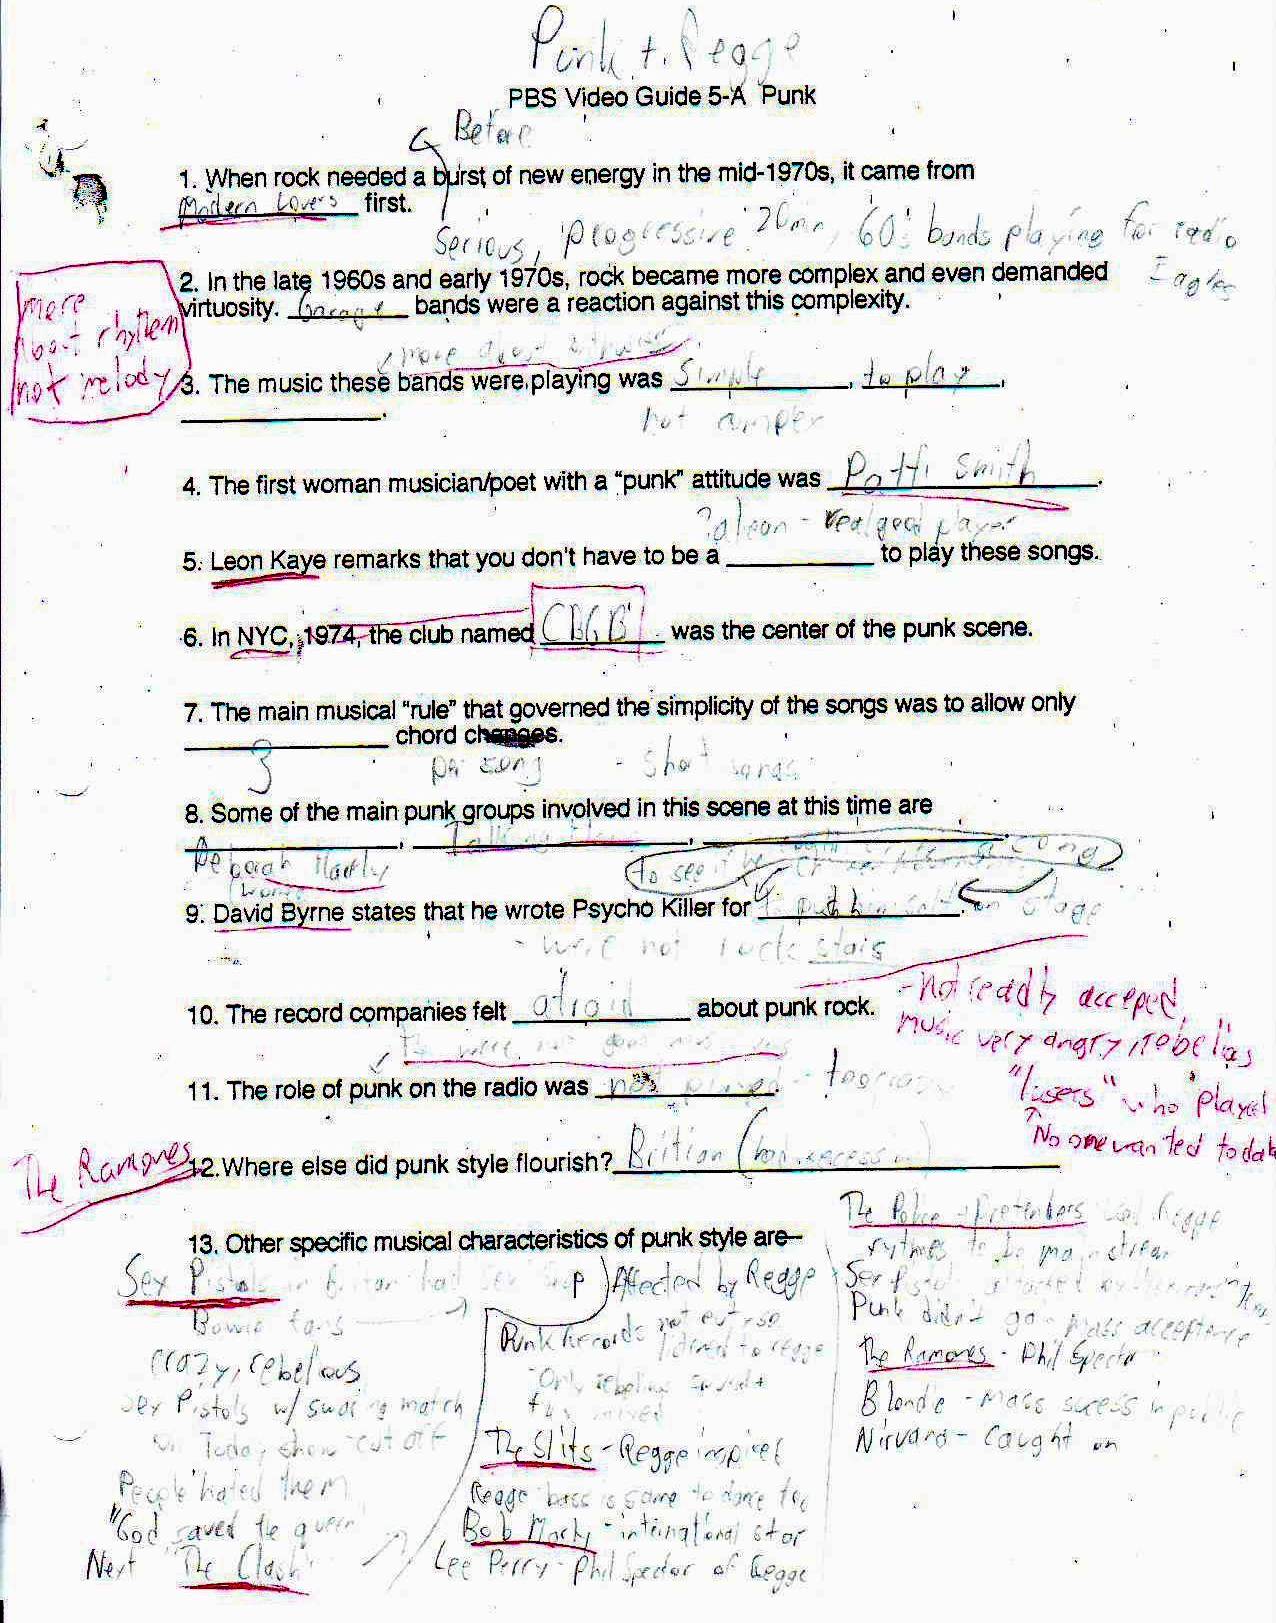 Punk + Regge
PBS Video Guide 5-A Punk
Before
1. When rock needed a burst of new energy in the mid-1970s, it came from
Modern Lovers first.
Serious, Progressive 20min, 60's bands playing for radio
Eagles
2. In the late 1960s and early 1970s, rock became more complex and even demanded
virtuosity. Garage bands were a reaction against this complexity.
more
about rhythem
not melody
more about
3. The music these bands were playing was Simple, to play,
not
4. The first woman musician/poet with a "punk" attitude was Patti Smith.
real good player
5. Leon Kaye remarks that you don't have to be a to play these songs.
6. In NYC, 1974, the club named CBGB was the center of the punk scene.
7. The main musical "rule" that governed the simplicity of the songs was to allow only
chord changes.
3 per song - short songs
8. Some of the main punk groups involved in this scene at this time are
Deborah Harry
to see if he song
9. David Byrne states that he wrote Psycho Killer for
on stage
- were not rock stars
10. The record companies felt afraid about punk rock.
- Not readly accepted,
music very angry, rebelias
11. The role of punk on the radio was not played -
"lusers" who played
No one wanted to date
The Ramones
12. Where else did punk style flourish? Britian
13. Other specific musical characteristics of punk style are--
Sex Pistols in Britian had Sex Shop
Bowie fans
crazy, rebelious
Sex Pistols w/ swearing match
on Today show - cut off
People hated them
"God saved the queen
Next The Clash
Affected by Regge
Punk records not out so
listened to regge
Only rebelious
The Slits - Regge inspired
Regge bass is same to dance to
Bob Marly - international star
Lee Perry - Phil Spector of Regge
The Police - Pretenders used Regge
rythmes to be mainstream
Sex Pistols attacked
Punk didn't gain mass acceptance
The Ramones - Phil Spector
Blondie - Mass sucess in public
Nirvana - Caught on